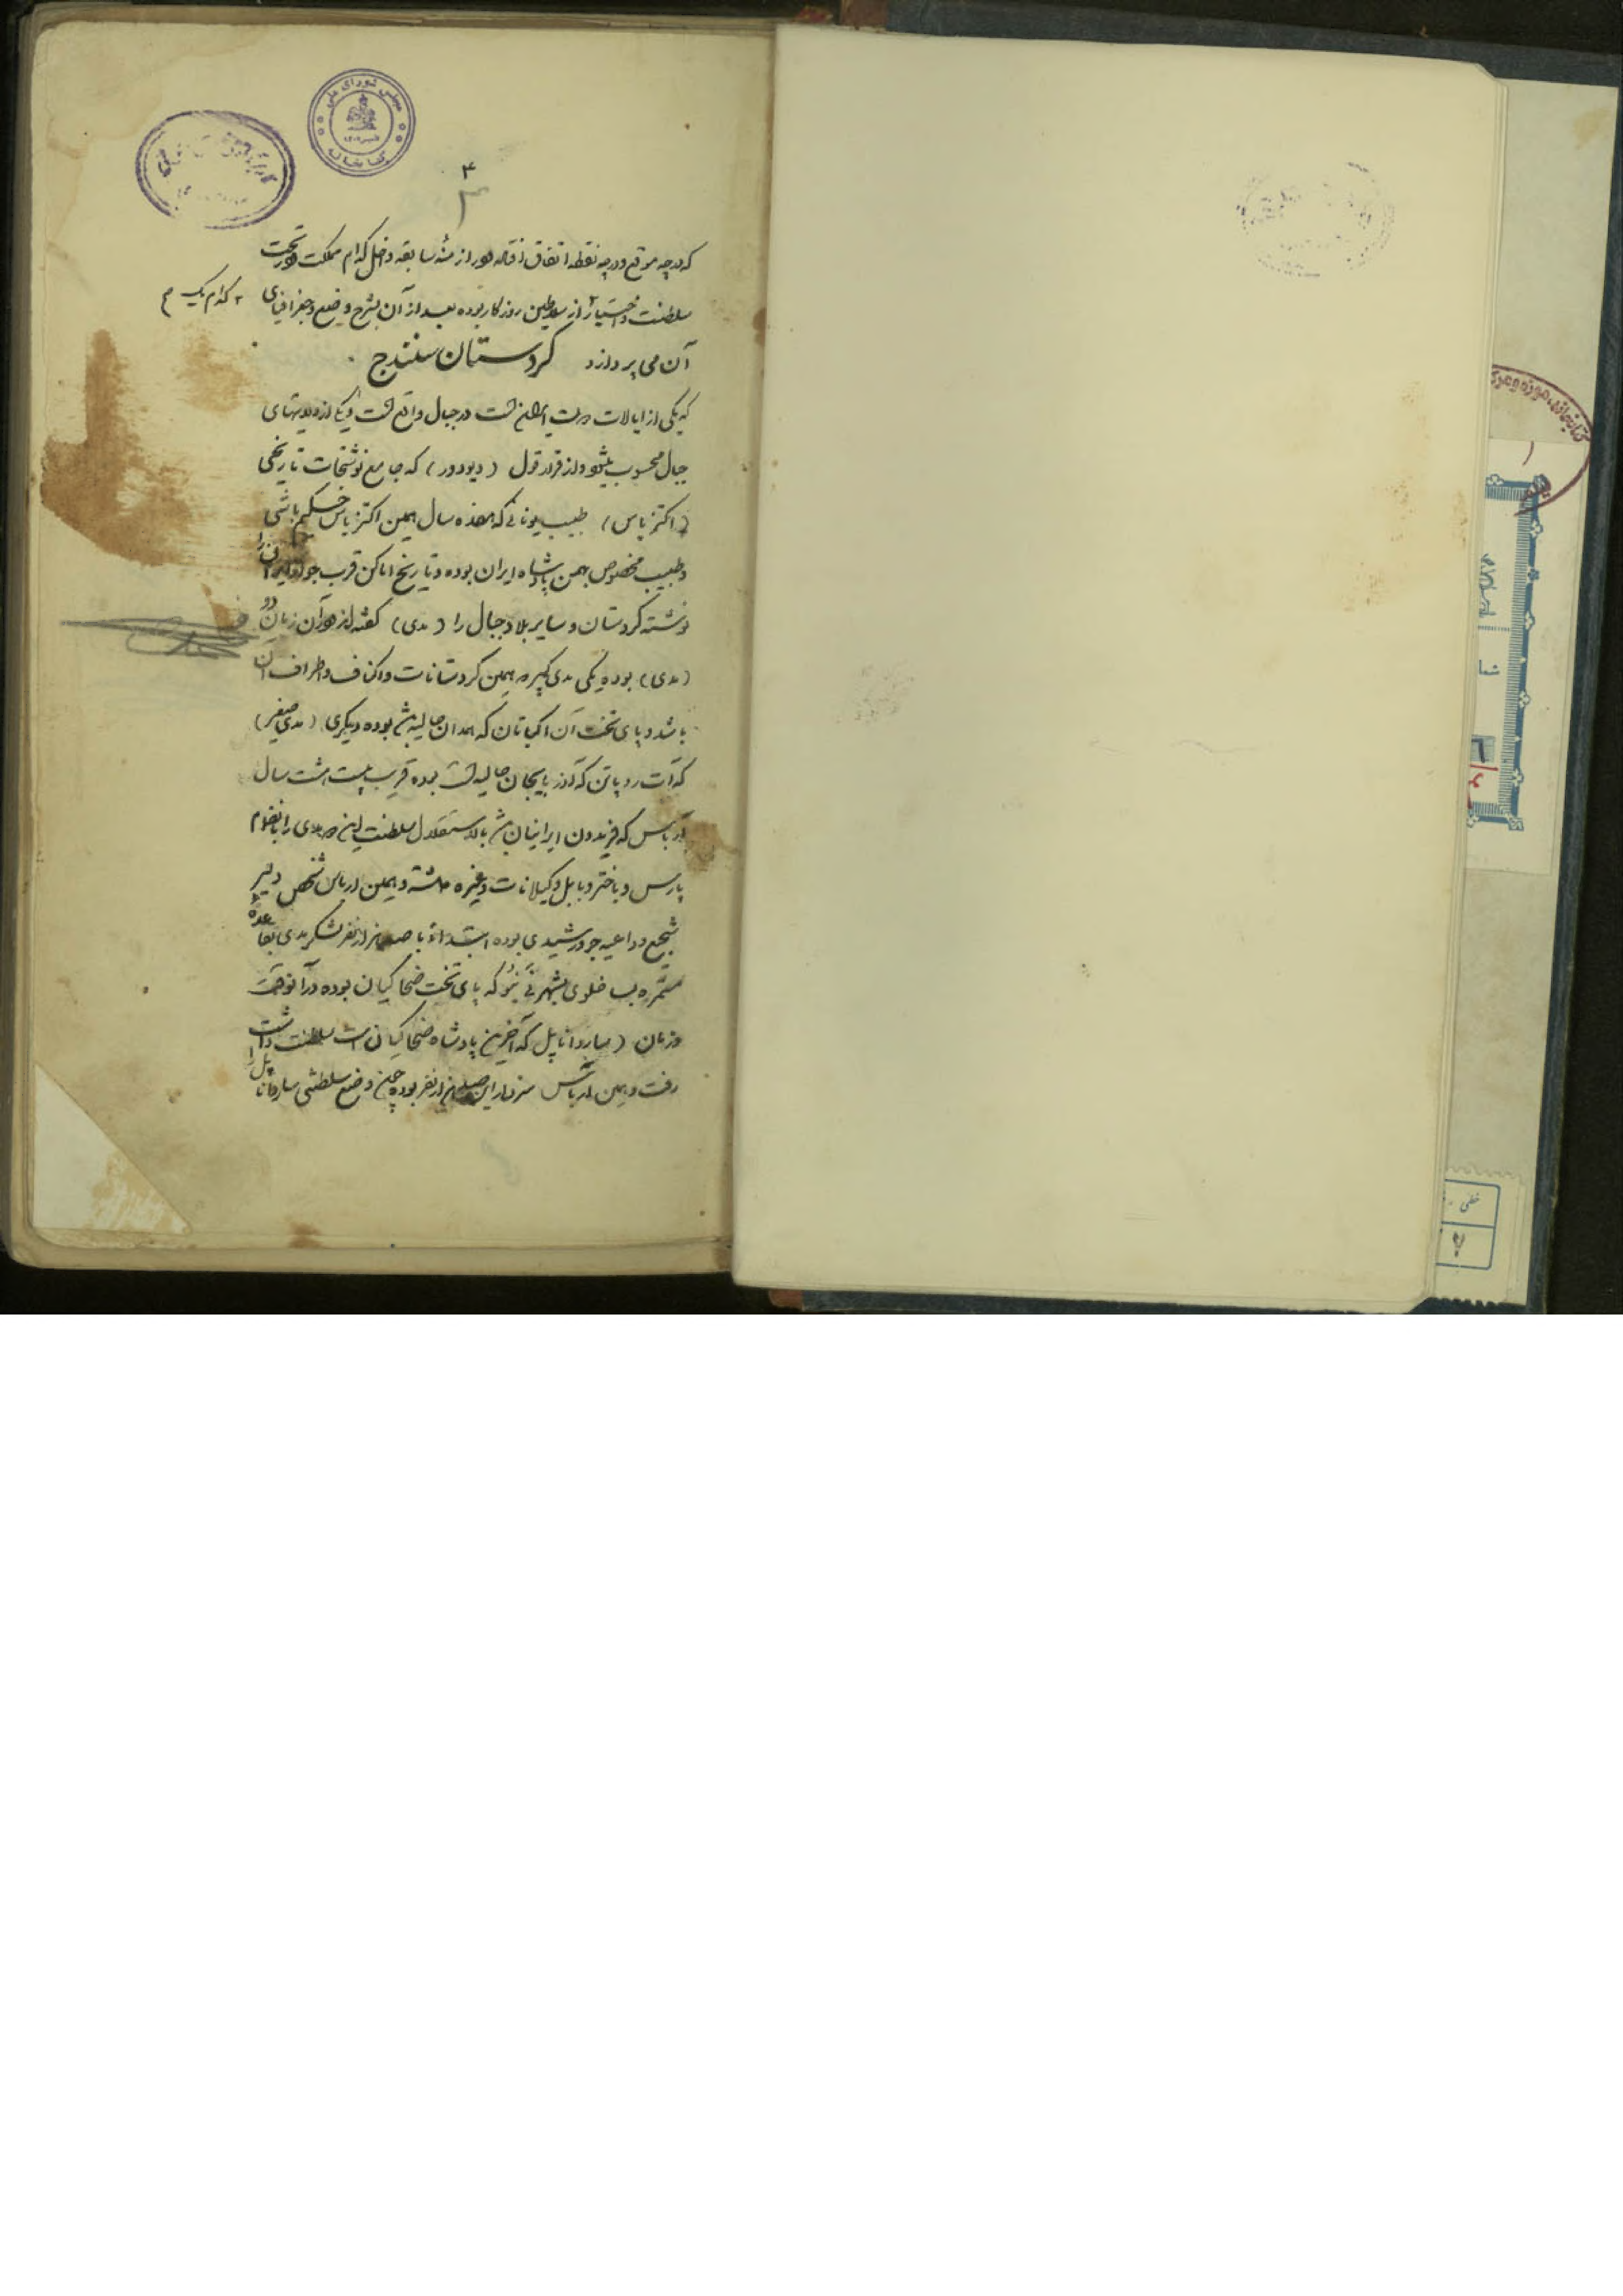 مجلس شورای ملی
کتابخانه
۳
که در چه موقع و در چه نقطه اتفاق افتاده و در ازمنه سابقه داخل کدام مملکت و در تحت
سلطنت و اختیار از سلاطین روزگار بوده بعد از آن بشرح وضع جغرافیای
کدام یک
آن می پردازد کردستان سنندج
که یکی از ایالات است در جبال واقع است و یکی از
جبال محسوب میشود و از قرار قول (دیودور) که جامع نوشتجات تاریخی
(اکتزیاس) طبیب یونانی که هفده سال همین اکتزیاس حکیم باشی
و طبیب مخصوص بهمن پادشاه ایران بوده و تاریخ اماکن قرب جوار ایران را
نوشته کردستان و سایر بلاد جبال را (مدی) گفته اند در آن زمان دو
(مدی) بوده یکی مدی کبیر که همین کردستانات و اکناف و اطراف آن
باشد و پای تخت آن اکباتان که همدان حالیه باشد بوده دیگری (مدی صغیر)
که آت روپاتن که آذربایجان حالیه است بوده قریب بیست هشت سال
آرباس که فریدون ایرانیان باشد بالاستقلال سلطنت این دو مدی را بانضمام
پارس و باختر و بابل و گیلانات و غیره داشته و همین ارباس شخص دلیر
شجیع و داعیه جو و رشیدی بوده ابتداءً با صد هزار نفر لشکر مدی بقاعده
مستمره بساخلوی بشهر نی نیو که پای تخت ضحاکیان بوده در آنوقت
و زمان (ساردانا پل که آخرین پادشاه ضحاکیان است سلطنت داشت
رفت و همین ارباس سردار این صد هزار نفر بوده چون وضع سلطنتی ساردانا پل را
خطی